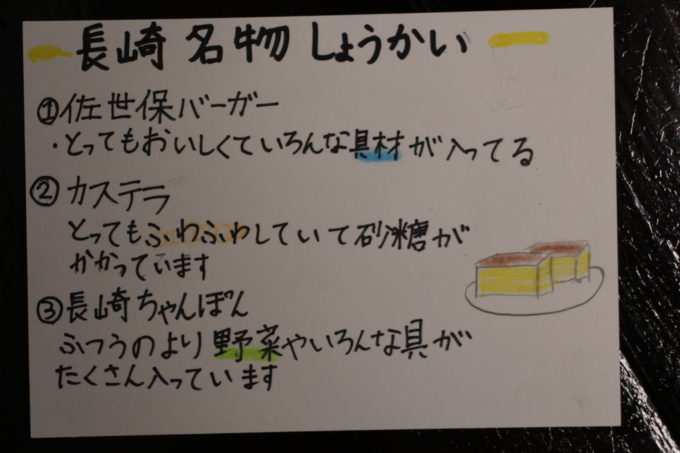 長崎名物しょうかい
①佐世保バーガー
・とってもおいしくていろんな具材が入ってる
②カステラ
とってもふわふわしていて砂糖が
かかっています
③長崎ちゃんぽん
ふつうのより野菜やいろんな具が
たくさん入っています